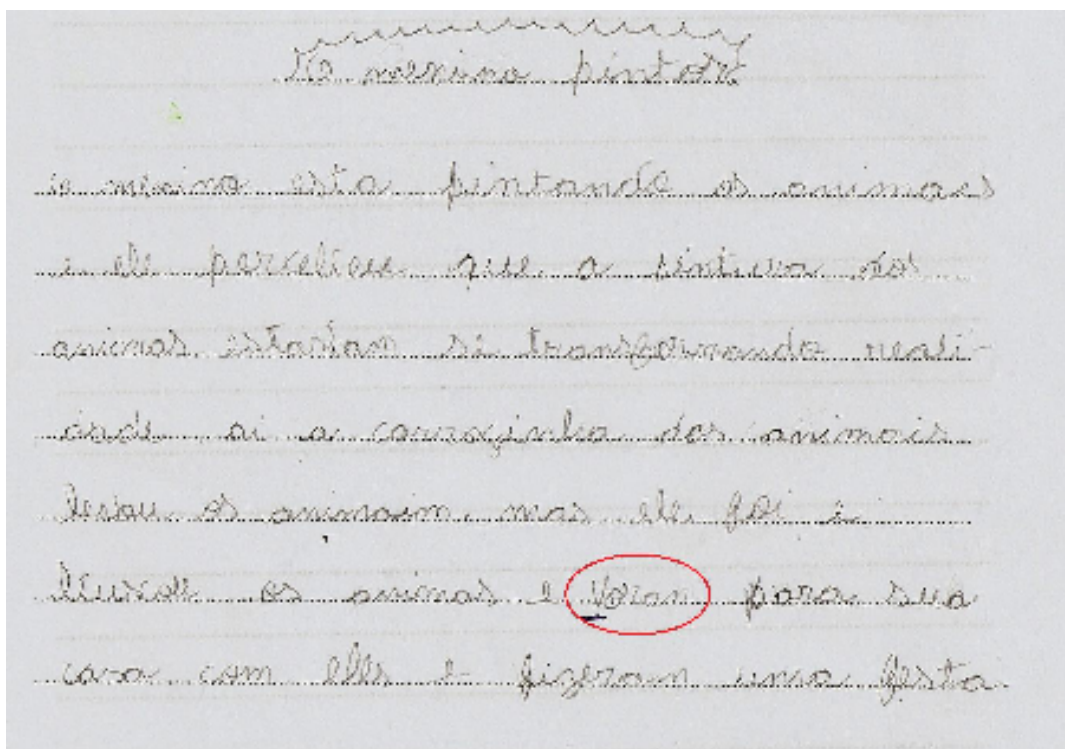 O menino pintor
o menino esta pintando os animaes
e ele percebeu que a pintura dos
animas estavam si transformando reali-
dade ai a carrocinha dos animais
levou os animaim mas ele foi e
os animas e Voran para sua
casa com elles e fizeram uma festa